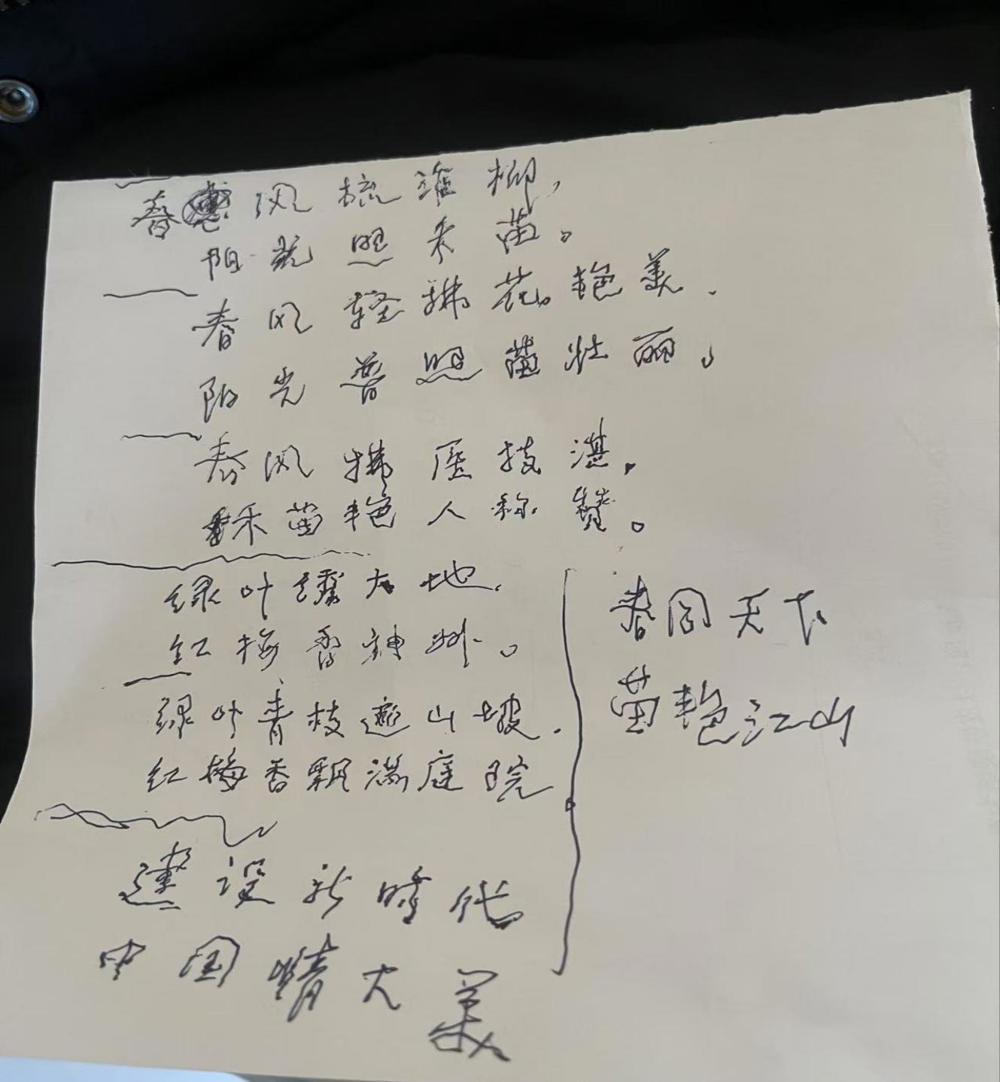 春风梳淮柳,
阳光照禾苗。
春风轻拂花艳美.
阳光普照苗壮丽。
春风拂医技湛.
禾苗艳人称赞。
绿叶大地.
红梅香神州。
绿叶青枝遮山坡.
红梅香飘满庭院
建设新时代
中国情大美
春回天下
苗艳江山